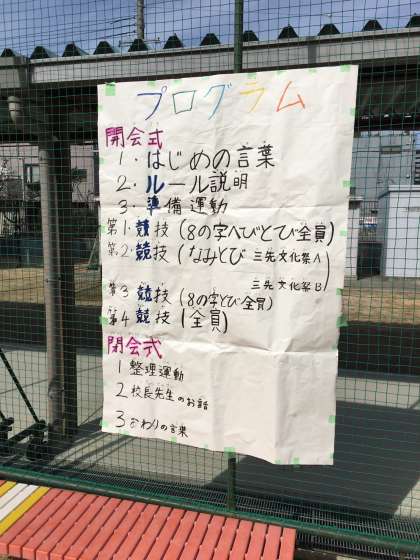 プログラム
開会式
1・はじめの言葉
2・ルール説明
3・準備運動
第1・競技(8の字へびとび全員)
第2・競技(なみとび 三先文化祭A)
三先文化祭B
第3競技(8の字とび全員)
第4競技(全員)
閉会式
1整理運動
2校長先生のお話
3おわりの言葉